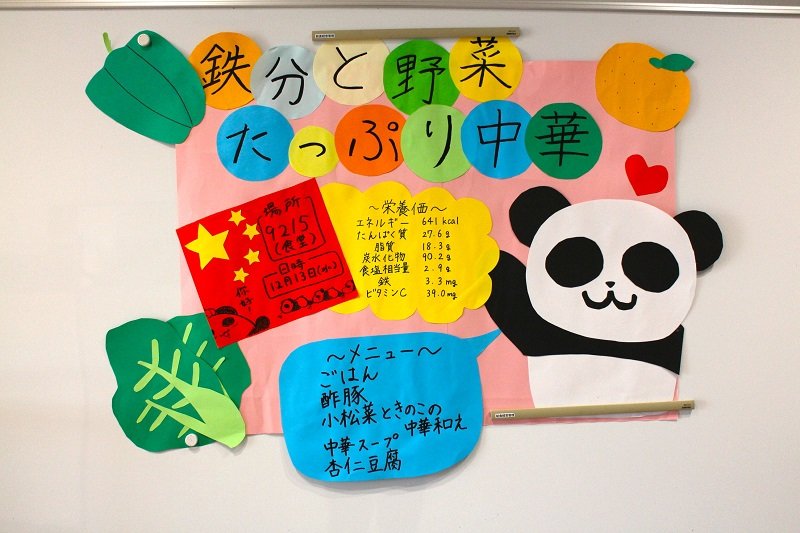 鉄分と野菜
たっぷり中華
場所
9215
(食堂)
日時
12月13日(水)
你好!
~栄養価~
エネルギー 641 kcal
たんぱく質 27.6g
脂質 18.3g
炭水化物 90.2g
食塩相当量 2.9g
鉄 3.3mg
ビタミンC 39.0mg
~メニュー~
ごはん
酢豚
小松菜ときのこの
中華和え
中華スープ
杏仁豆腐